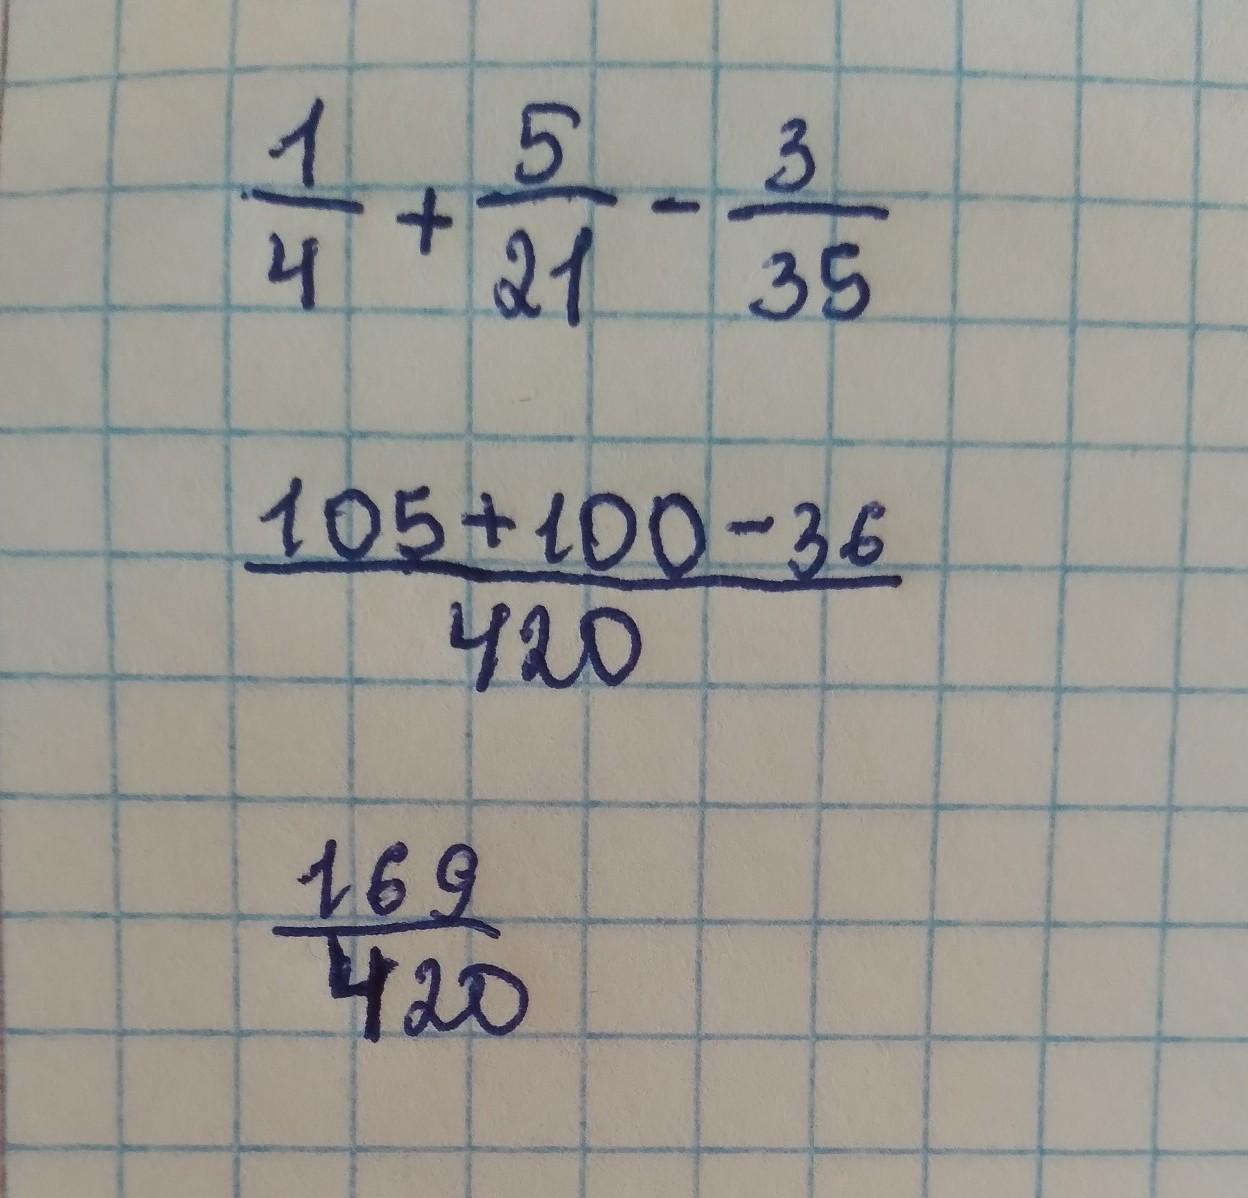 1/4 + 5/21 - 3/35
105+100-36/420
169/420